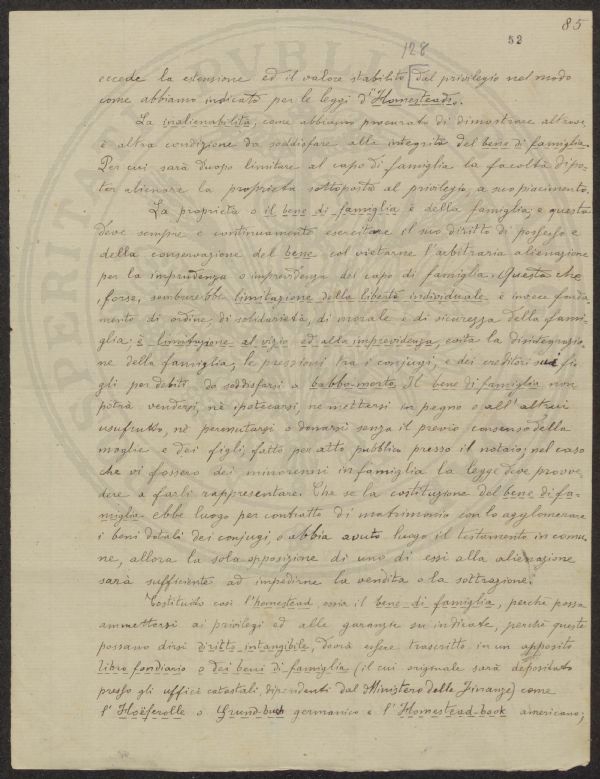 85
128
52
eccede la estensione ed il valore stabilito dal privilegio nel modo
come abbiamo indicato per le leggi d'Homesteads.
La inalienabilità, come abbiamo procurato di dimostrare altrove,
è altra condizione da soddisfare alla integrità del bene di famiglia.
Per cui sarà duopo limitare al capo di famiglia la facoltà di po-
ter alienare la proprietà sottoposta al privilegio, a suo piacimento.
La proprietà o il bene di famiglia è della famiglia, e questa
deve sempre e continuamente esercitare il suo diritto di possesso e
della conservazione del bene col vietarne l'arbitraria alienazione
per la imprudenza o imprevidenza del capo di famiglia. Questa che
forse, sembrerebbe limitazione della libertà individuale è invece fonda-
mento di ordine, di solidarietà, di morale e di sicurezza della fami-
glia; è limitazione al vizio ed alla imprevidenza, evita la disintegrazio-
ne della famiglia, le pressioni tra i conjugi, e dei creditori sui fi-
gli per debiti, da soddisfarsi a babbo morto. Il bene di famiglia non
potrà vendersi, nè ipotecarsi, nè mettersi in pegno o all'altrui
usufrutto, nè permutarsi o donarsi senza il previo consenso della
moglie e dei figli, fatto per atto pubblico presso il notaio; nel caso
che vi fossero dei minorenni in famiglia la legge deve provve-
dere a farli rappresentare. Che se la costituzione del bene di fa-
miglia ebbe luogo per contratto di matrimonio con lo agglomerare
i beni dotali dei conjugi, o abbia avuto luogo il testamento in comu-
ne, allora la sola opposizione di uno di essi alla alienazione
sarà sufficiente ad impedirne la vendita o la sottrazione.
Costituito così l'homestead ossia il bene di famiglia, perchè possa
ammettersi ai privilegi ed alle garanzie su indicate, perchè queste
possano dirsi diritto intangibile, dovrà essere trascritto in un apposito
libro fondiario o dei beni di famiglia (il cui originale sarà depositato
presso gli uffici catastali, dipendenti dal Ministero delle Finanze) come
l'Hoëferolle o Grund-buch germanico e l'Homestead-book americano;